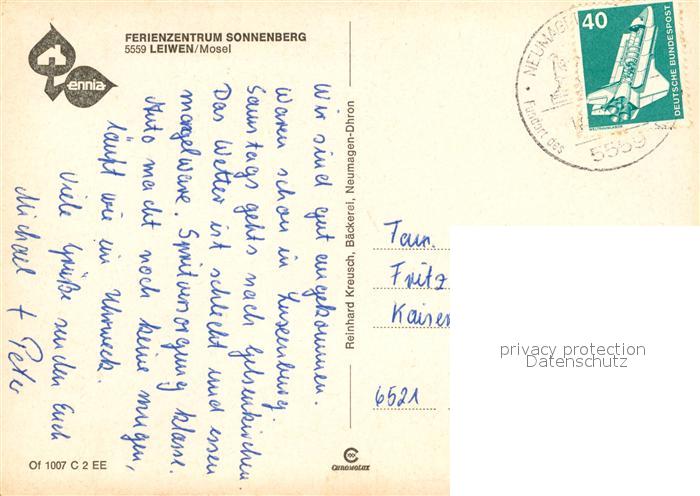 FERIENZENTRUM SONNENBERG
5559 LEIWEN/Mosel
ennia
Wir sind gut angekommen.
Waren schon in Luxenburg.
Samstags gehts nach Gelsenkirchen.
Das Wetter ist schlecht und essen
mangelware. Spritversorgung klasse.
Auto macht noch keine mugen,
läuft wie ein Uhrweck.
Viele Grüße senden Euch
Michael + Peter
Reinhard Kreusch, Bäckerei, Neumagen-Dhron
Of 1007 C 2 EE
CHROMOLUX
40
DEUTSCHE BUNDESPOST
NEUMAGEN
Fundort des
5559
Fam.
Fritz
Kaiser
6521
privacy protection
Datenschutz